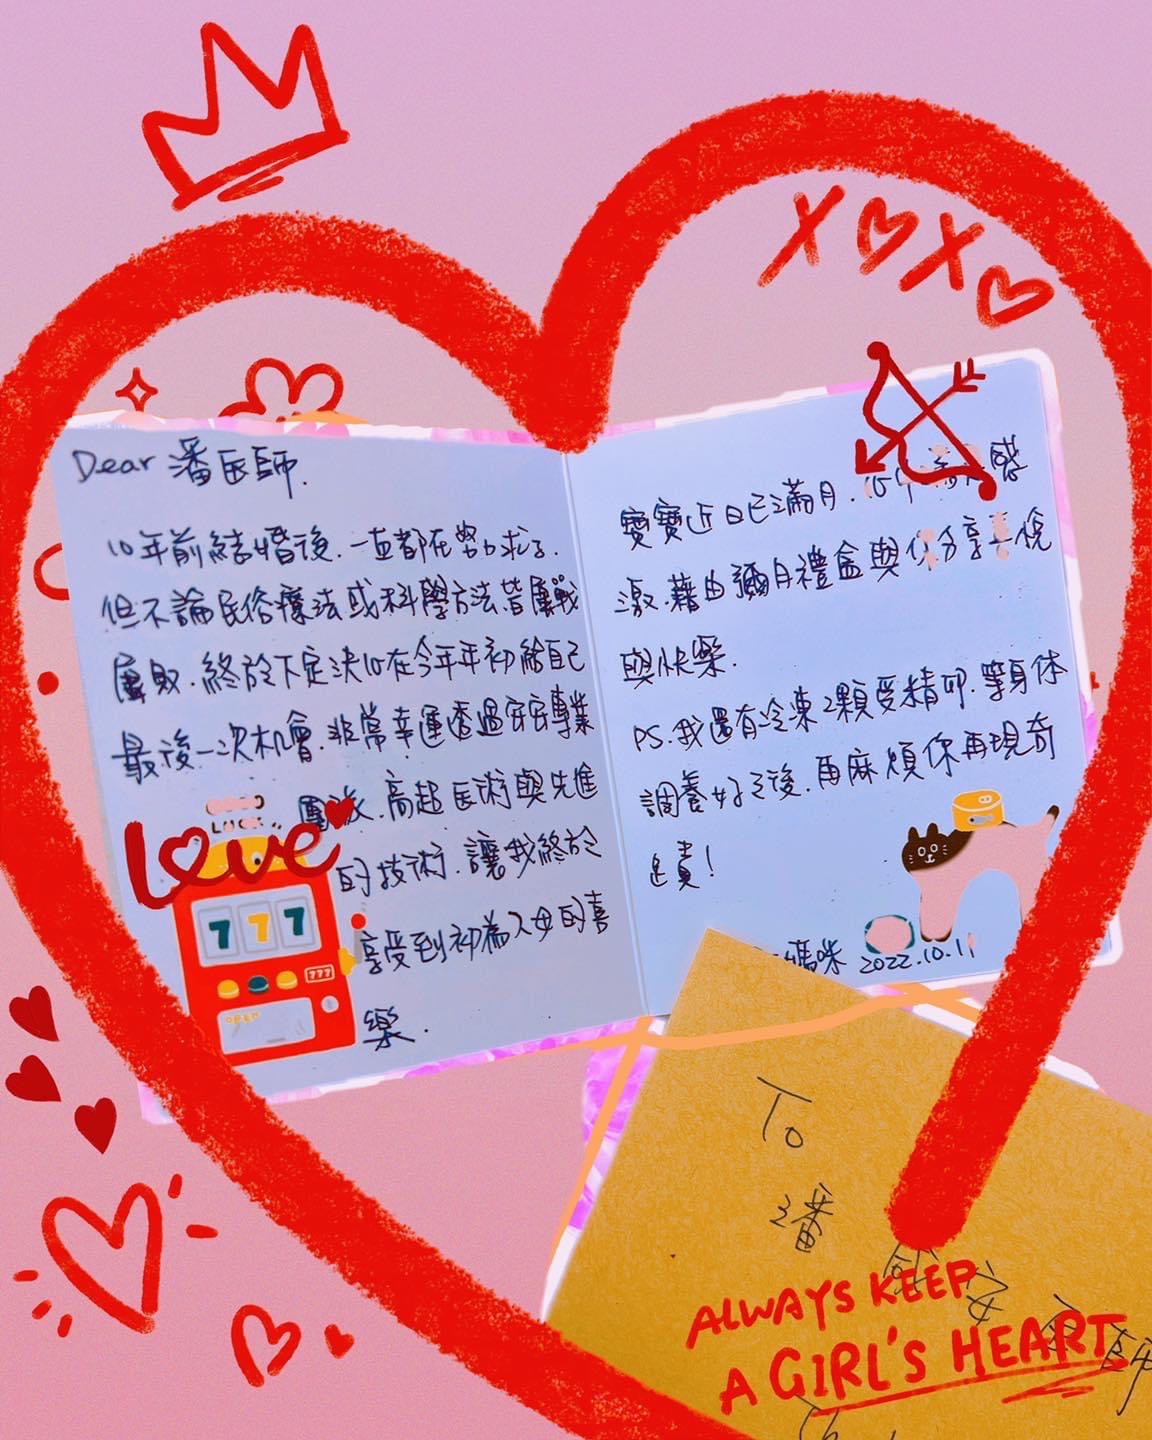 XOXO
Dear 潘医師.
10年前結婚後.一直都在努力求子.
但不論民俗療法或科學方法.皆屢戰
屢敗.終於下定決心在今年年初給自己
最後一次机會.非常幸運透過安安專業
團隊.高超医術與先進
的技術.讓我終於
享受到初為人母的喜
樂.
love
777
777
OPEN
寶寶近日已滿月. 感
激.藉由彌月禮盒與你分享喜悅
與快樂.
PS.我還有冷凍2顆受精卵.等身体
調養好了後.再麻煩你再現奇
蹟!
媽咪 2022.10.11
To
潘
医師
ALWAYS KEEP
A GIRL'S HEART